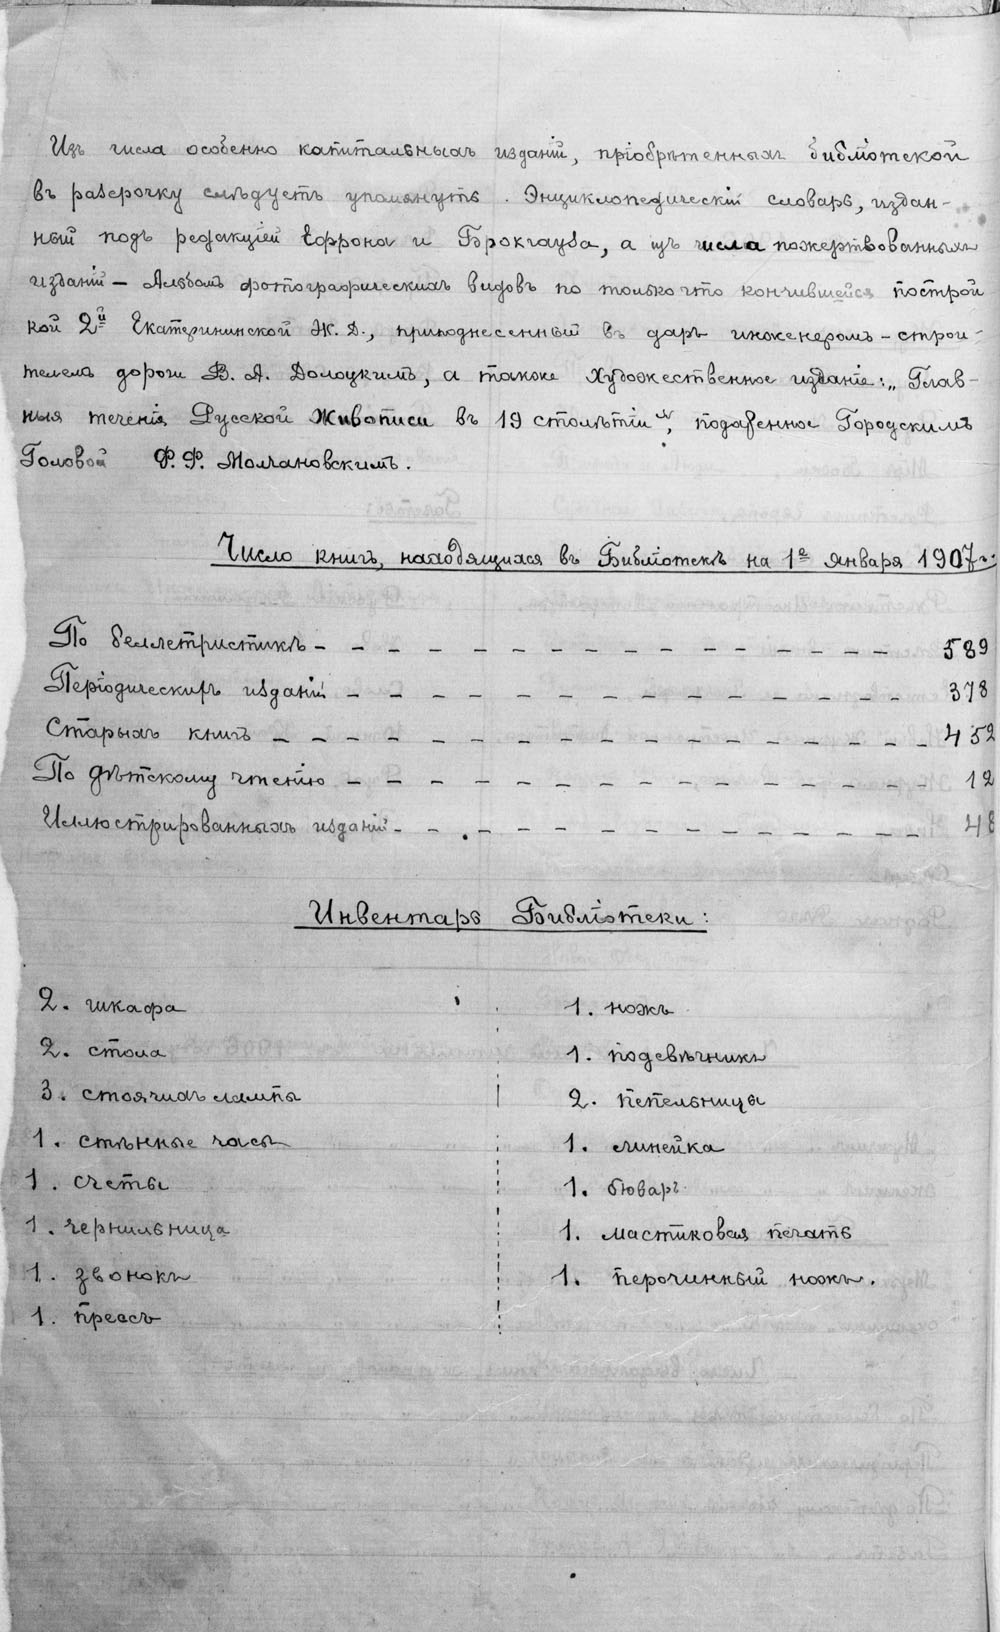 Изъ числа особенно капитальныхъ изданій, пріобрѣтенныхъ библіотекой
въ разсрочку слѣдуетъ упомянуть. Энциклопедическій словарь, издан-
ный подъ редакціей Ефрона и Брокгауза, а изъ числа пожертвованныхъ
изданій – Альбомъ фотографическихъ видовъ по только что кончившейся построй
кой 2й Екатерининской Ж. Д., приподнесенный въ даръ инженеромъ – строи-
телемъ дороги В. А. Долоцкимъ, а также художественное изданіе: „Глав-
ныя теченія Русской Живописи въ 19 столѣтіи“, подаренное Городскимъ
Головой Ф. Ф. Молчановскимъ.
Число книгъ, находящихся въ Библіотекѣ на 1е Января 1907 г.
По беллетристикѣ – – – – – – – – – – – – – – 589
Періодическихъ изданій – – – – – – – – – – – – – – 378
Старыхъ книгъ – – – – – – – – – – – – – – – – 452
По дѣтскому чтенію – – – – – – – – – – – – – – 12
Иллюстрированныхъ изданій – – – – – – – – – – – – – 48
Инвентарь Библіотеки:
2. шкафа
2. стола
3. стоячихъ лампы
1. стѣнные часы
1. счеты
1. чернильница
1. звонокъ
1. прессъ
1. ножъ
1. подсвѣчникъ
2. пепельницы
1. линейка
1. бюваръ
1. мастиковая печать
1. перочинный ножъ.